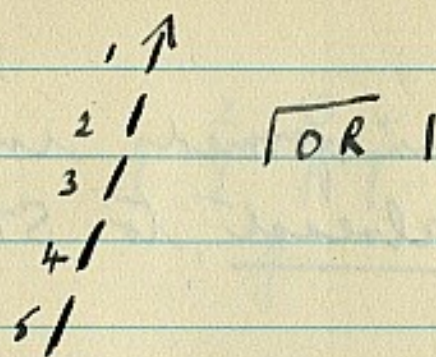 1
2 OR
3
4
5